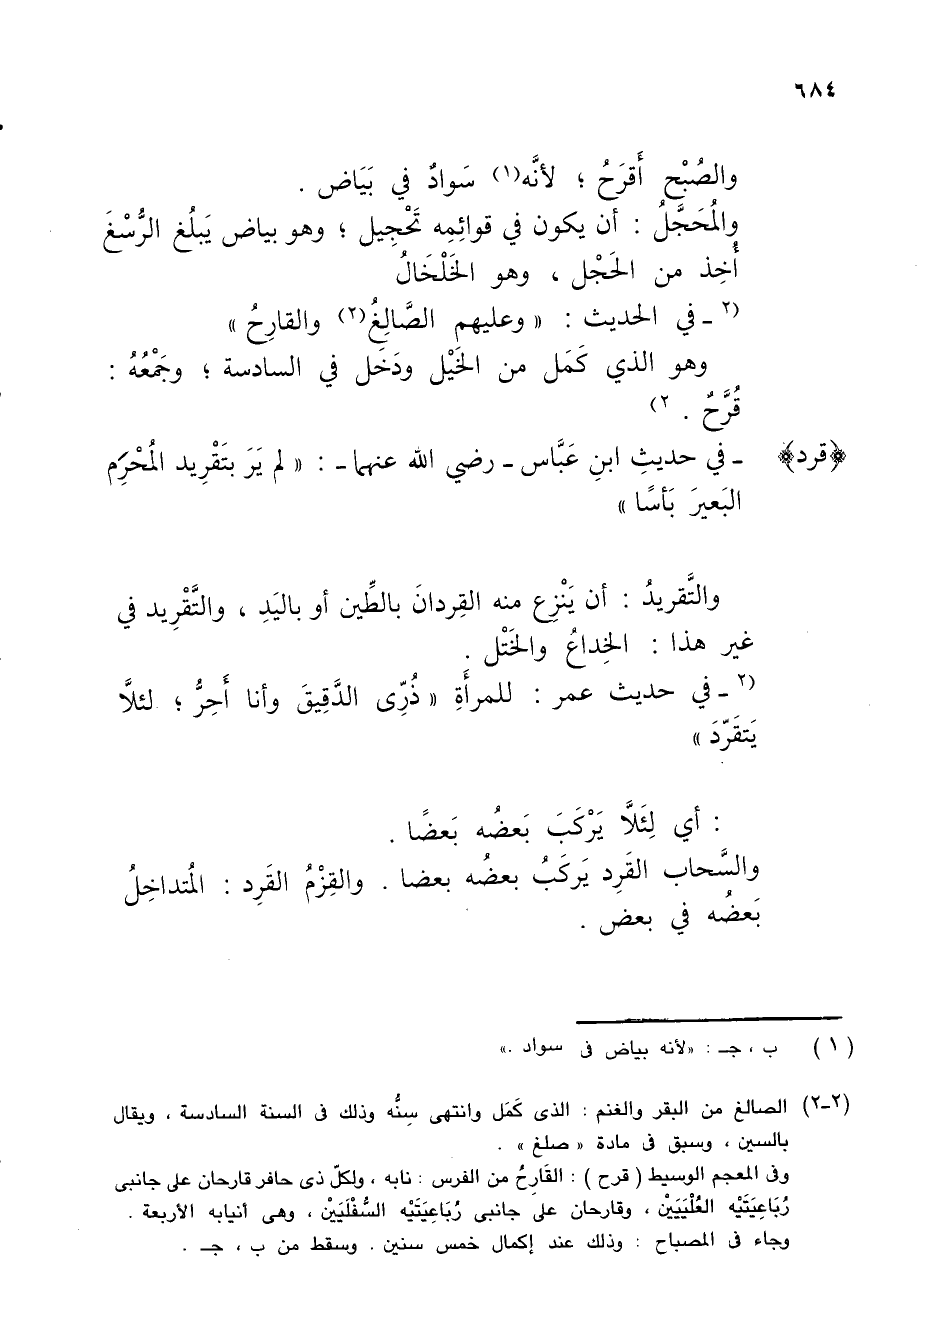 ٦٨٤
والصُبْح أَقرَحُ ؛ لأنَّه(١) سَوادٌ في بَيَاض .
والمُحَجَّلُ : أن يكون في قوائِمِه تَحْجِيل ؛ وهو بياض يَبلُغ الرُّسْغَ
أُخِذ من الحَجْل ، وهو الخَلْخَالُ
(٢ ـ في الحديث : « وعليهم الصَّالِغُ(٢) والقارِحُ »
وهو الذي كَمَل من الخَيْل ودَخَل في السادسة ؛ وجَمْعُهُ :
قُرَّحٌ . ٢)
﴿قرد﴾ ـ في حديثِ ابنِ عَبَّاس ـ رضي الله عنهما ـ : « لم يَرَ بتَقْرِيد المُحْرِم
البَعيرَ بَأسًا »
والتَّقريدُ : أن يَنْزِع منه القِردانَ بالطِّين أو باليَدِ ، والتَّقْرِيد في
غير هذا : الخِداعُ والخَتْل .
(٢ ـ في حديث عمر : للمرأَةِ « ذُرِّى الدَّقِيقَ وأنا أَحِرُّ ؛ لئلاَّ
يَتقَرَّدَ »
: أي لِئَلاَّ يَرْكَبَ بَعضُه بَعضًا .
والسَّحاب القَرِد يَركَبُ بعضُه بعضا . والقِزْمُ القَرِد : المُتداخِلُ
بَعضُه في بعض .
(١) ب ، جـ : «لأنه بياض فى سواد .»
(٢-٢) الصالغ من البقر والغنم : الذى كَمَل وانتهى سِنُّه وذلك فى السنة السادسة ، ويقال
بالسين ، وسبق فى مادة « صلغ » .
وفى المعجم الوسيط ( قرح ) : القَارِحُ من الفرس : نابه ، ولكلّ ذى حافر قارحان على جانبى
رُبَاعِيَتَيْه العُلْيَيَيْن ، وقارحان على جانبى رُبَاعِيَتَيْه السُّفْلَيَيْن ، وهى أنيابه الأربعة .
وجاء فى المصباح : وذلك عند إكمال خمس سنين . وسقط من ب ، جـ .